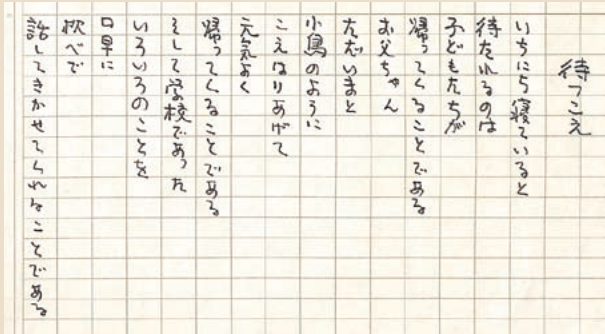 待つこえ
いちにち寝ていると
待たれるのは
子どもたちが
帰ってくることである
お父ちゃん
ただいまと
小鳥のように
こえはりあげて
元気よく
帰ってくることである
そして学校であった
いろいろのことを
口早に
枕べで
話してきかせてくれることである